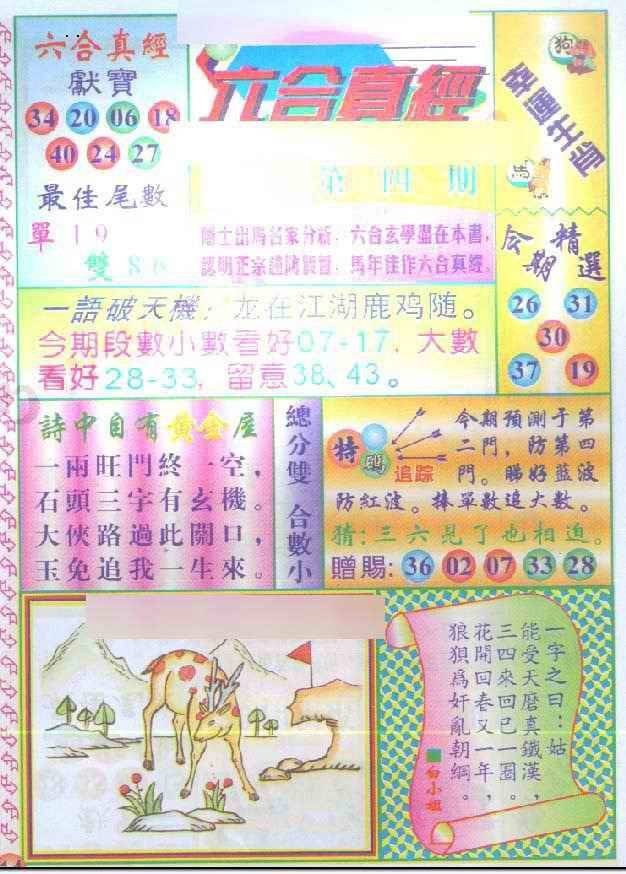 六合真經
獻寶
34 20 06 18
40 24 27
最佳尾數
單 19
雙 86
六合真經
第四期
隱士出馬名家分析，六合玄學盡在本書，
認明正宗趙鴻賢曾，馬年佳作六合真經。
幸運生肖
狗
馬
今期精選
26 31
30
37 19
一語破天機：龙在江湖鹿鸡随。
今期段數小數看好07-17，大數
看好28-33，留意38、43。
詩中自有黃金屋
一兩旺門終一空，
石頭三字有玄機。
大俠路過此關口，
玉免追我一生來。
總分雙 合數小
特碼追踪
今期預測于第
二門，防第四
門。睇好藍波
防紅波。捧單數追大數。
猜：三六見了也相迫。
贈賜：36 02 07 33 28
一字之曰：姑
能受天磨真鐵漢，
三四來回已一圈。
花開回春又一年，
狼狽爲奸亂朝綱。
白小姐